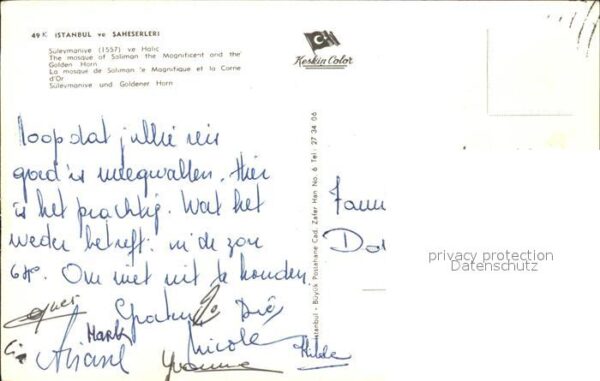 49 K ISTANBUL ve ŞAHESERLERİ
Süleymaniye (1557) ve Haliç
The mosque of Soliman the Magnificent and the
Golden Horn
La mosque de Soliman le Magnifique et la Corne
d'Or
Süleymaniye und Goldener Horn
Keskin Color
İstanbul - Büyük Postahane Cad. Zafer Han No. 6 Tel: 27 34 06
hoop dat jullie reis
goed is meegevallen. Hier
is het prachtig. Wat het
weder betreft: in de zon
64°. Om niet uit te houden.
Fam
Do
privacy protection
Datenschutz
Mark
Nicole
Yvonne
Hilde